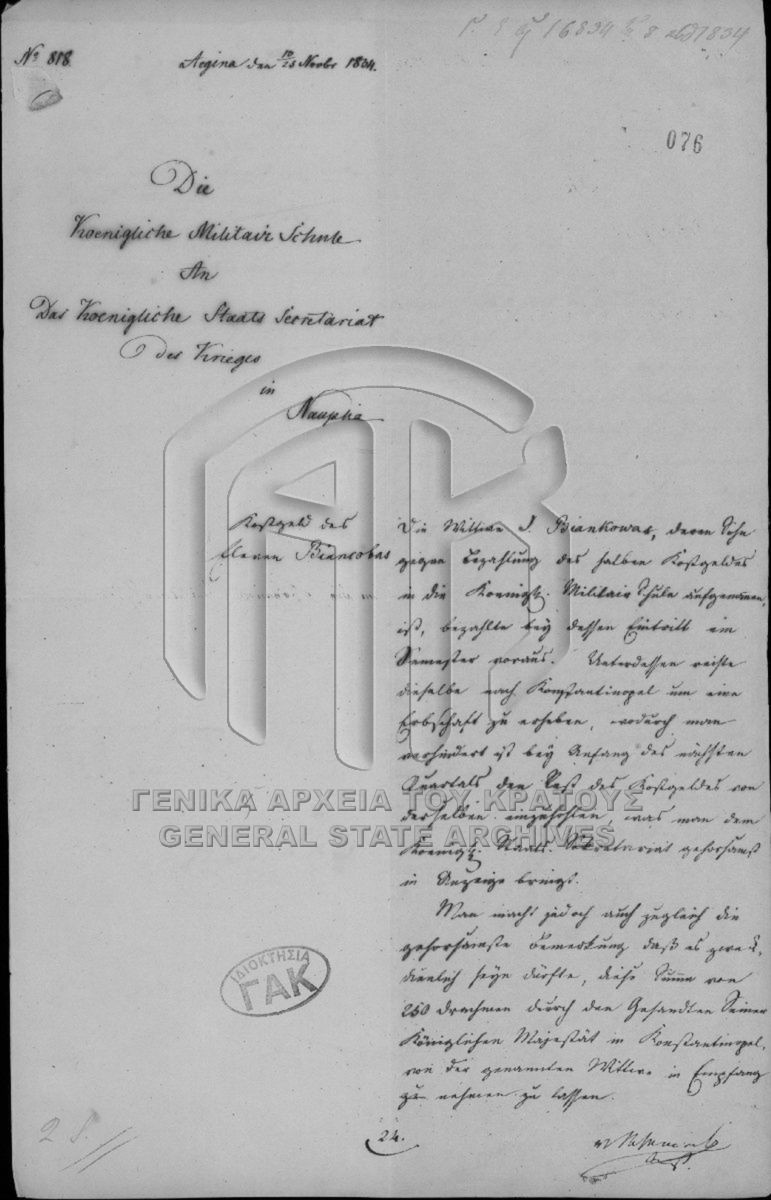 No 818
Aegina den 10/22 Novbr 1834.
076
Die
Koenigliche Militair Schule
An
Das Koenigliche Staats Secretariat
des Krieges
in
Nauplia
Kostgeld des
Eleven Biancobas
Die Wittwe J. Biankowas, deren Sohn
gegen Bezahlung des halben Kostgeldes
in die Koenigl. Militair Schule aufgenommen
ist, bezahlte bey dessen Eintritt ein
Semester voraus. Unterdessen reiste
dieselbe nach Konstantinopel um eine
Erbschaft zu erheben, wodurch man
verhindert ist bey Anfang des nächsten
Quartals den Rest des Kostgeldes von
derselben einzuholen, was man dem
Koenigl. Staats Sekretariat gehorsamst
in Anzeige bringt.
Man macht jedoch auch zugleich die
gehorsamste Bemerkung daß es zweck-
dienlich seyn dürfte, diese Summe von
250 Drachmen durch den Gesandten Seiner
Königlichen Majestät in Konstantinopel,
von der genannten Wittwe in Empfang
zu nehmen zu lassen.
24.
ΓΕΝΙΚΑ ΑΡΧΕΙΑ ΤΟΥ ΚΡΑΤΟΥΣ
GENERAL STATE ARCHIVES
ΙΔΙΟΚΤΗΣΙΑ
ΓΑΚ